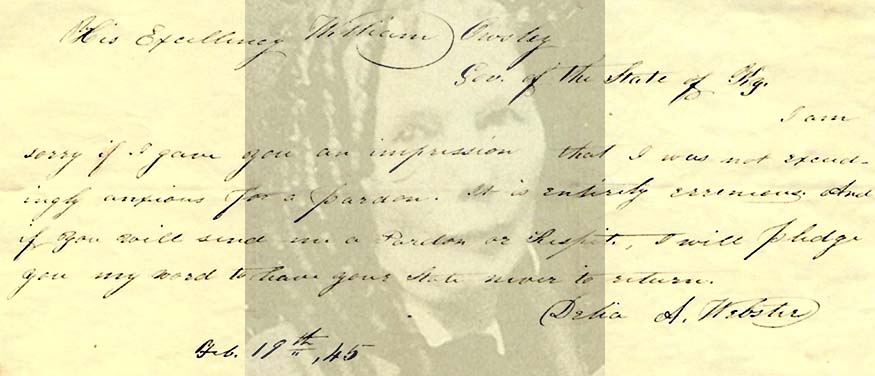 His Excellency William Owsley
Gov. of the State of Ky.
I am
sorry if I gave you an impression that I was not exceed-
ingly anxious for a pardon. It is entirely erronious. And
if you will send me a Pardon or Respit, I will pledge
you my word to leave your State never to return.
Delia A. Webster
Feb. 19th, 45